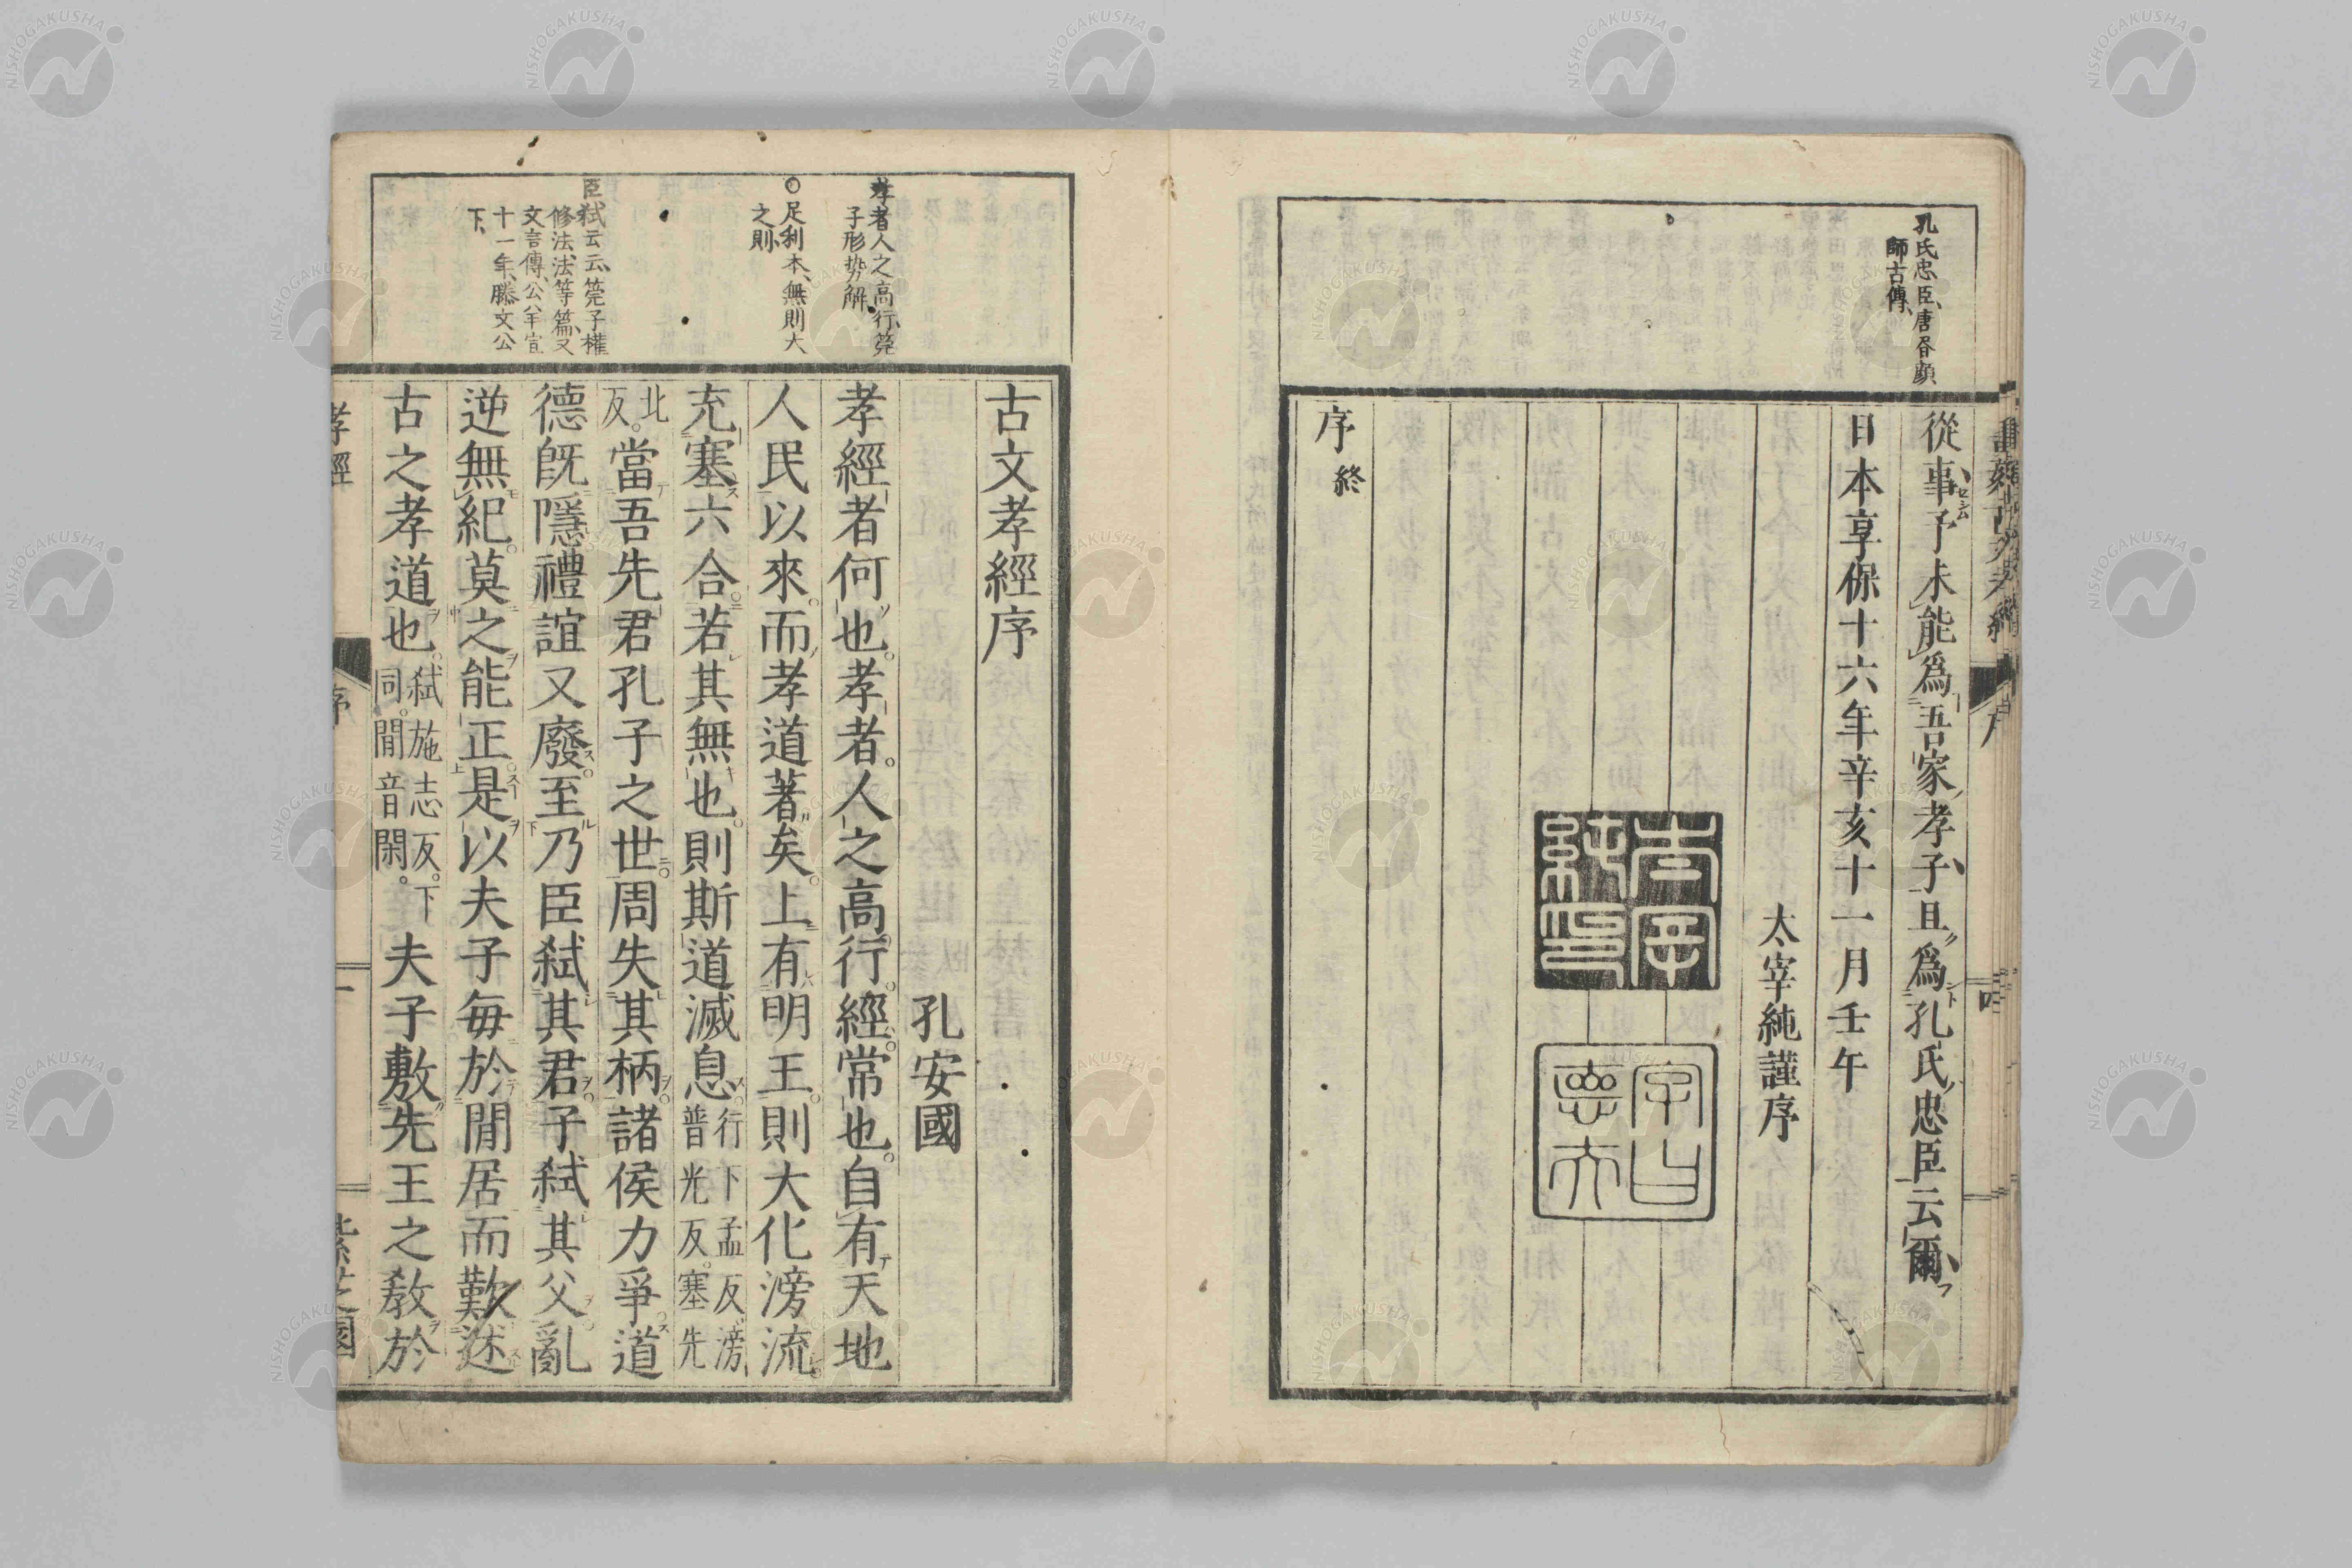 孔氏忠臣、唐書顔
師古傳、
從事予未能爲吾家孝子且爲孔氏忠臣云爾
日本享保十六年辛亥十一月壬午
太宰純謹序
太宰
純印
德夫
序終
孝者人之高行、筦
子形勢解、
○足利本、無則大
之則、
臣弑云云、筦子權
修法、法等篇、又
文言傳、公羊宣
十一年、滕文公
下、
古文孝經序
孔安國
孝經者何也。孝者。人之高行。經。常也。自有天地
人民以來。而孝道著矣。上有明王。則大化滂流。
充塞六合。若其無也。則斯道滅息。行下孟反。滂
普光反。塞先
北
反。當吾先君孔子之世。周失其柄。諸侯力爭。道
德既隱。禮誼又廢。至乃臣弑其君。子弑其父。亂
逆無紀。莫之能正。是以夫子每於閒居而歎述
古之孝道也。弑施志反。下
同。閒音閑。夫子敷先王之敎於
孝經
序
一
紫芝園